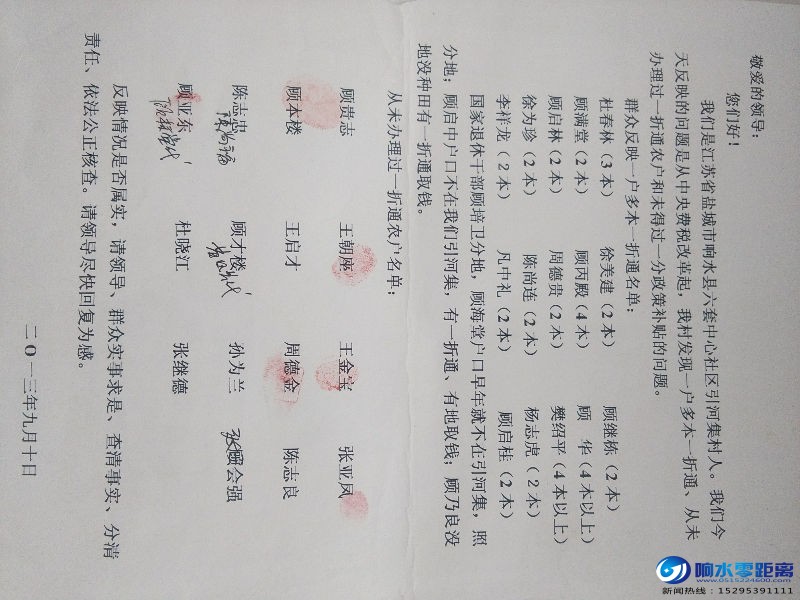 敬爱的领导：
您们好！
我们是江苏省盐城市响水县六套中心社区引河集村人。我们今
天反映的问题是从中央费税改革起，我村发现一户多本一折通、从未
办理过一折通农户和未得过一分政策补贴的问题。
群众反映一户多本一折通名单：
杜春林（3本） 徐美建（2本） 顾继栋（2本）
顾满堂（2本） 顾丙殿（4本） 顾 华（4本以上）
顾启林（2本） 周德贵（2本） 樊绍平（4本以上）
徐为珍（2本） 陈尚连（2本） 杨志虎（2本）
李祥龙（2本） 凡中礼（2本） 顾启桂（2本）
国家退休干部顾培卫分地，顾海堂户口早年就不在引河集，照
分地；顾启中户口不在我们引河集，有一折通、有地取钱；顾乃良没
地没种田有一折通取钱。
从未办理过一折通农户名单：
顾贵志 王朝座 王金宝 张亚凤
顾本楼 王启才 周德金 陈志良
陈志忠 顾才楼 孙为兰 张公强
顾亚东 杜晓江 张继德
反映情况是否属实，请领导、群众实事求是、查清事实、分清
责任、依法公正核查。请领导尽快回复为感。
二O一三年九月十日
响水零距离
www.0515224600.com
新闻热线：15295391111